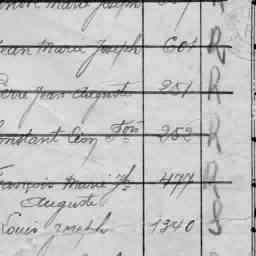 Marie Joseph
Jean Marie Joseph 601 R
Pierre Jean Auguste 251 R
Constant Léon Fois 252 R
François Marie 477 R
Auguste
Louis Joseph 1340 S